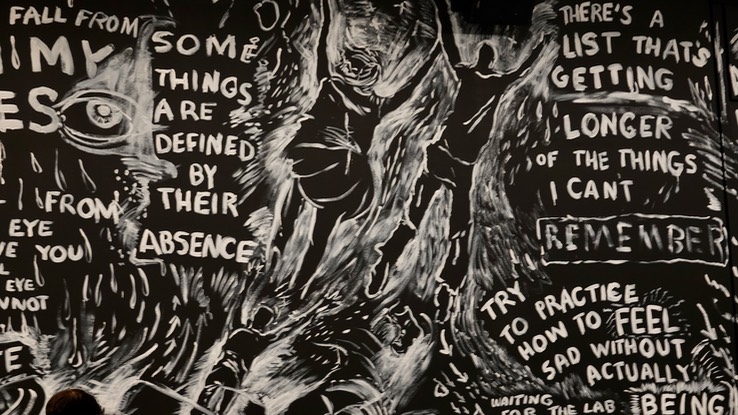 FALL FROM
MY
ES
FROM
EYE
VE YOU
EYE
NNOT
TE
SOME
THINGS
ARE
DEFINED
BY
THEIR
ABSENCE
THERE'S A
LIST THAT'S
GETTING
LONGER
OF THE THINGS
I CANT
REMEMBER
TRY
TO PRACTICE
HOW TO FEEL
SAD WITHOUT
ACTUALLY
WAITING
FOR THE LAB
BEING